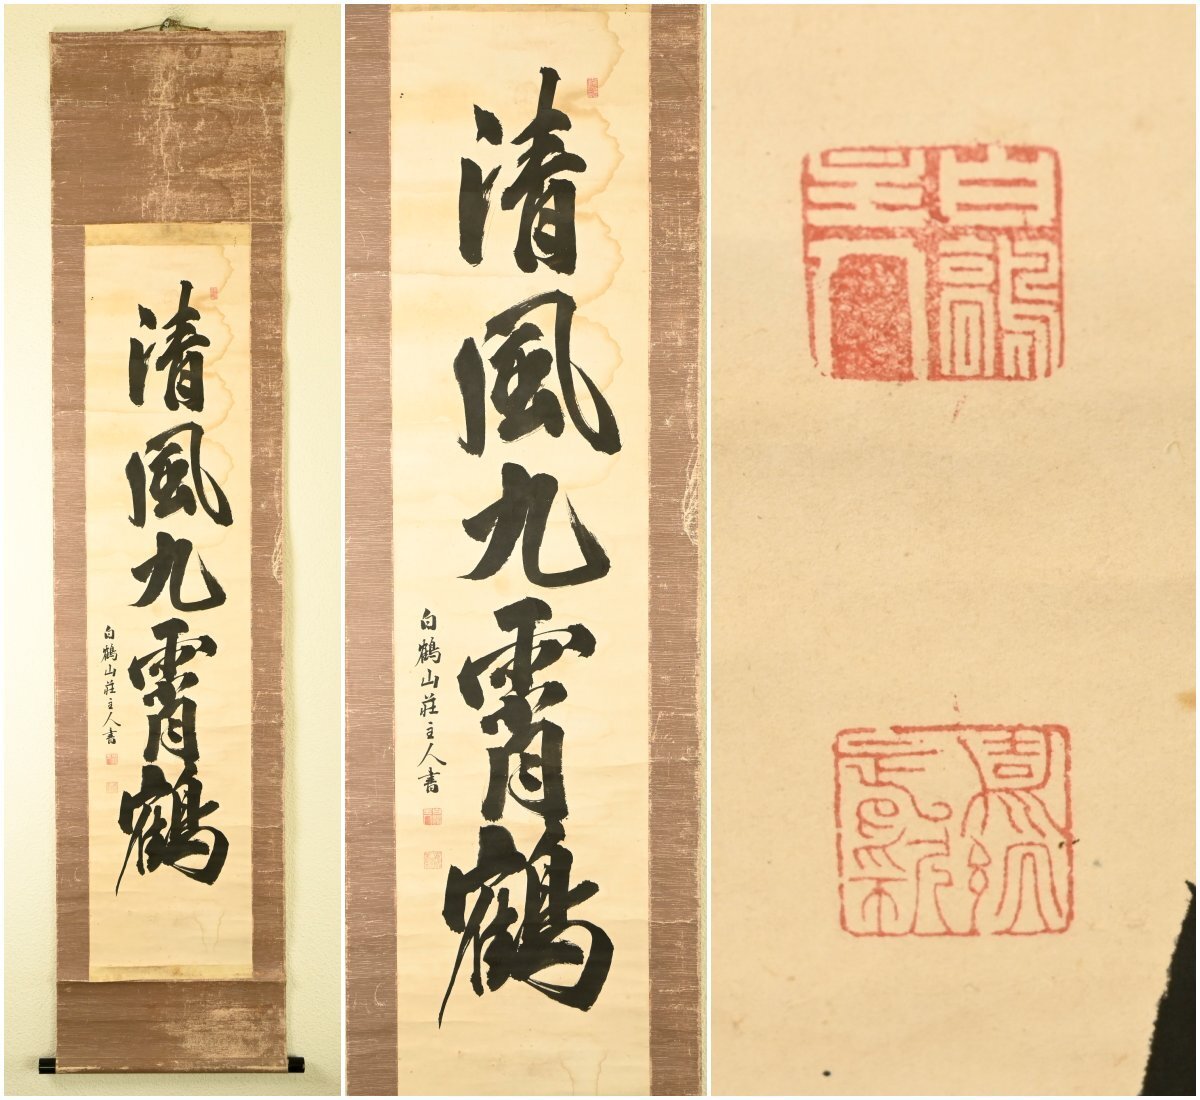 清風九霄鶴
白鶴山莊主人書
清風九霄鶴
白鶴山莊主人書